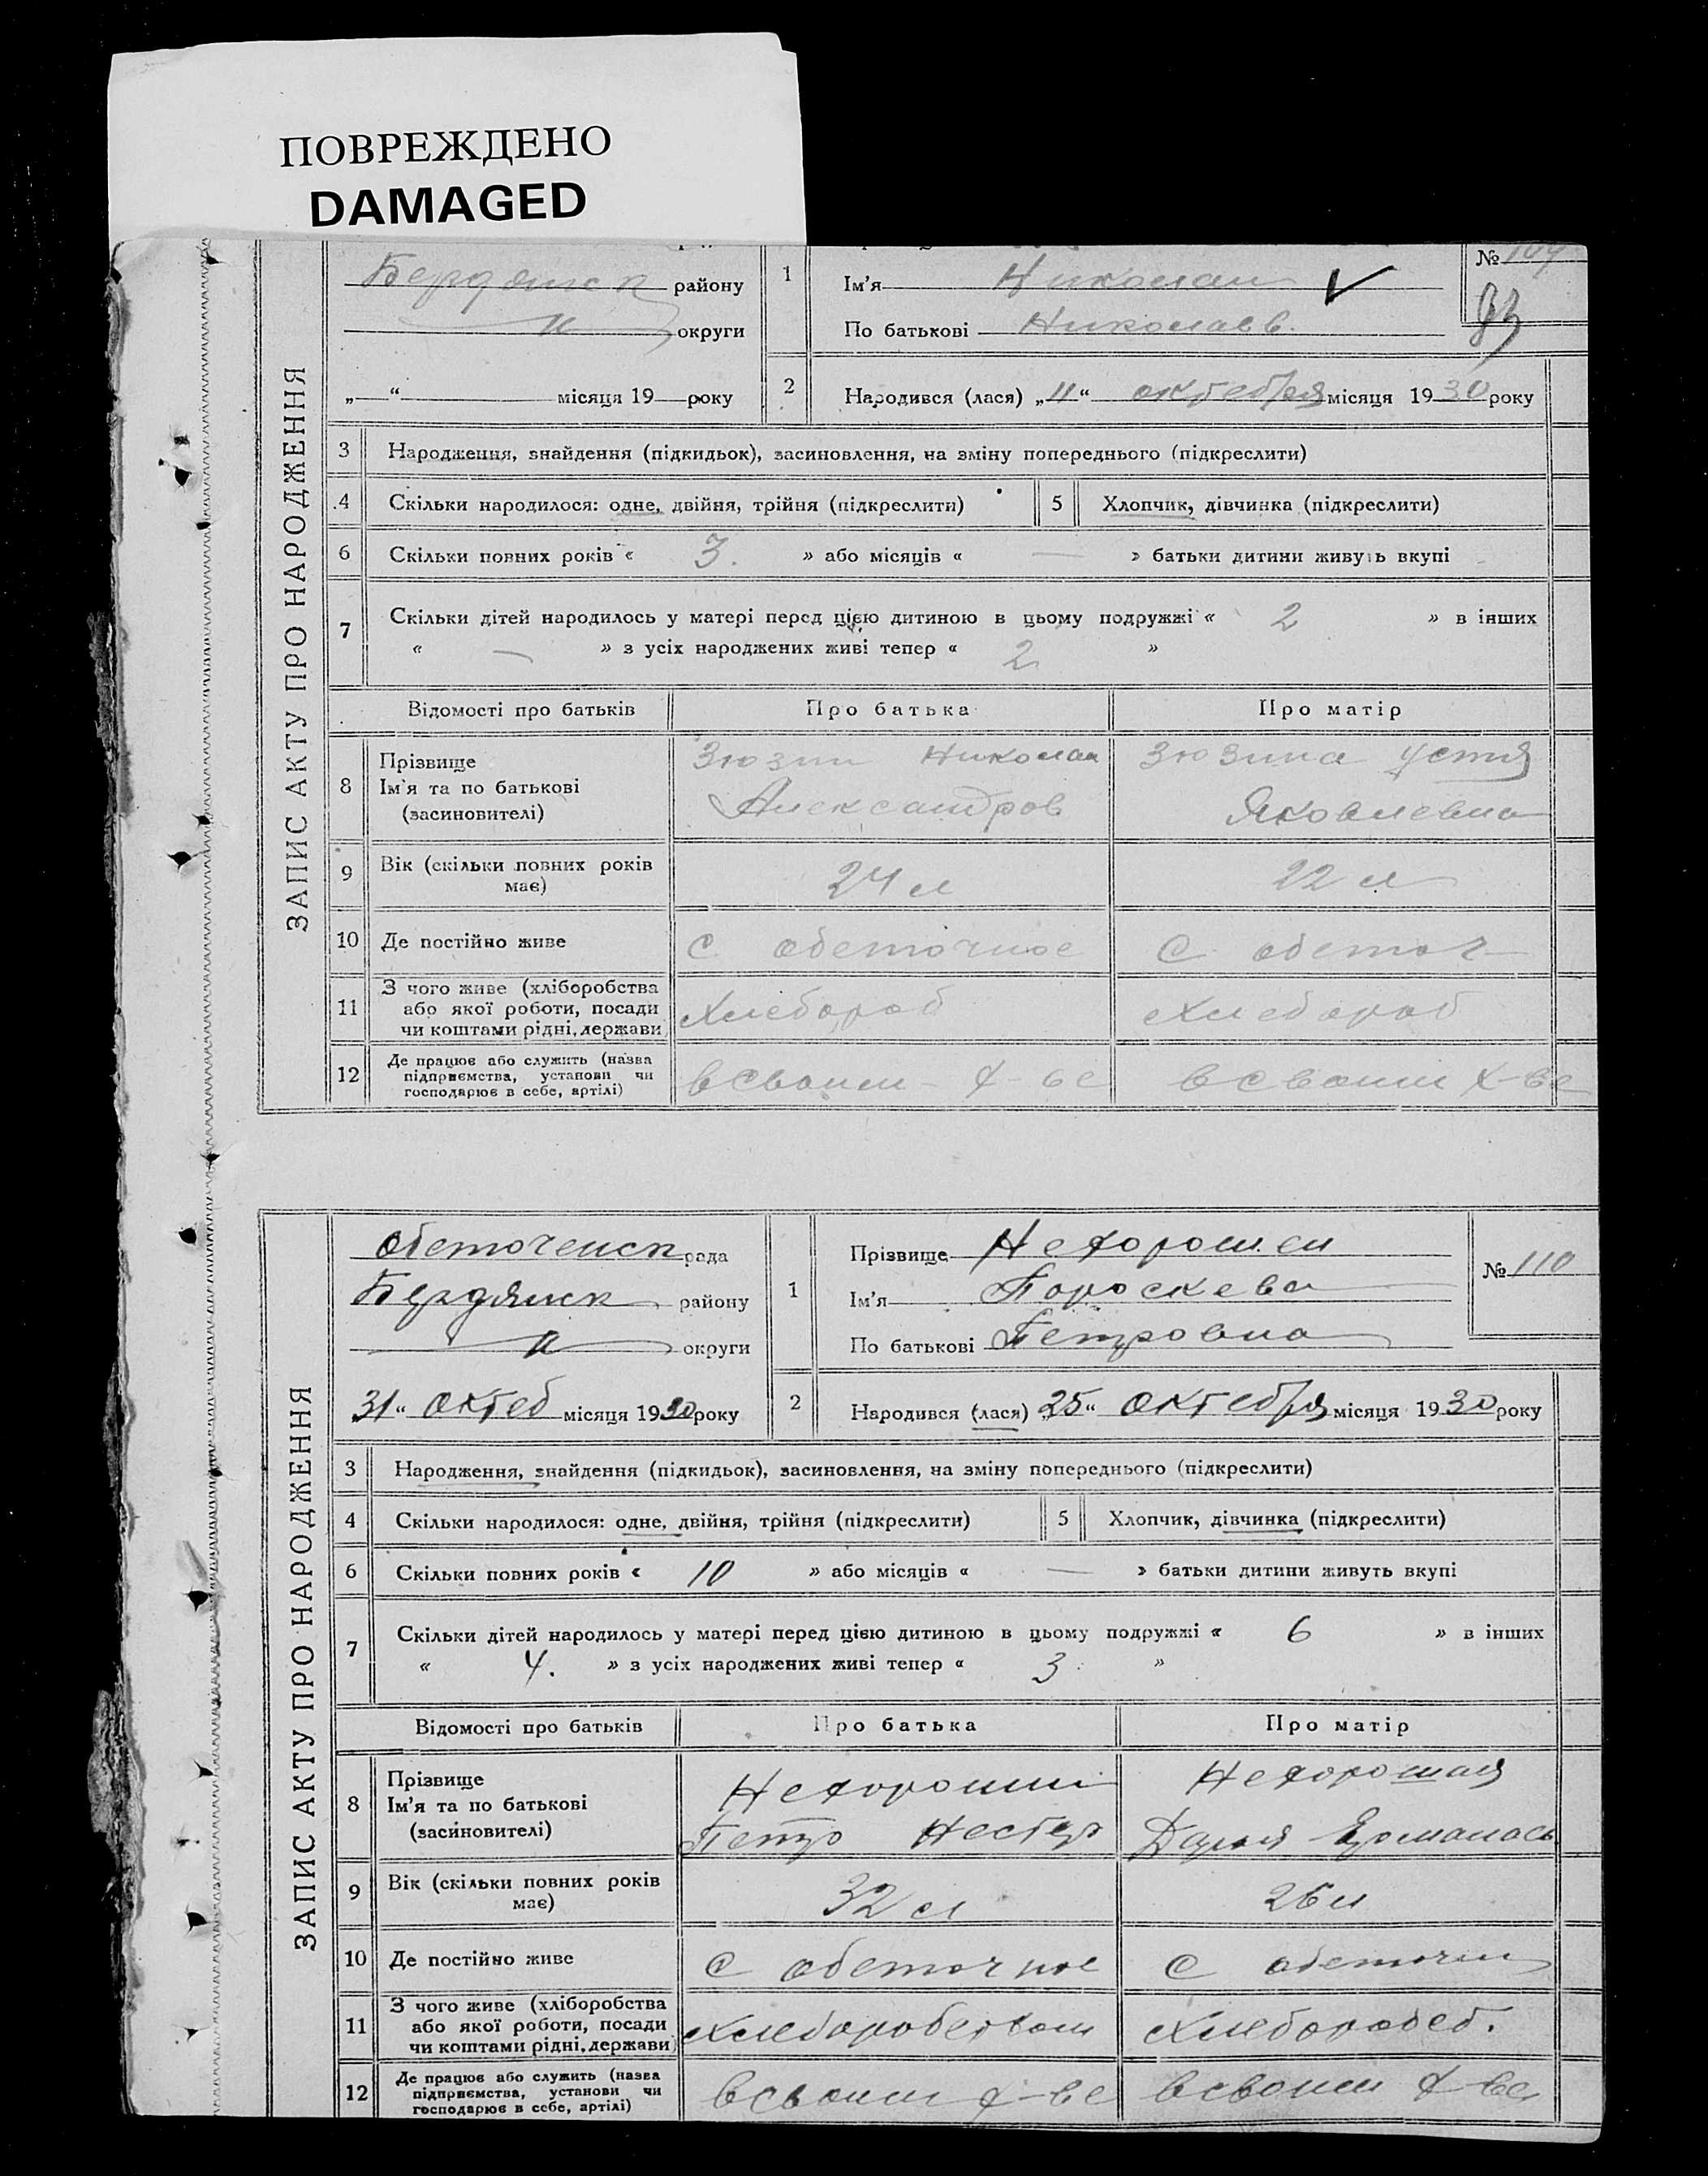 ПОВРЕЖДЕНО
DAMAGED
ЗАПИС АКТУ ПРО НАРОДЖЕННЯ
Бердянск району
округи
„ “ місяця 19 року
1
Ім'я Николаи
По батькові Николаев.
№ 109
2
Народився (лася) „11“ октебря місяця 1930 року
3 Народження, знайдення (підкидьок), засиновлення, на зміну попереднього (підкреслити)
4 Скільки народилося: одне, двійня, трійня (підкреслити) 5 Хлопчик, дівчинка (підкреслити)
6 Скільки повних років « 3. » або місяців « — » батьки дитини живуть вкупі
7 Скільки дітей народилось у матері перед цією дитиною в цьому подружжі « 2 » в інших
« — » з усіх народжених живі тепер « 2 »
Відомості про батьків Про батька Про матір
8 Прізвище
Ім'я та по батькові
(засиновителі)
Зюзин Николаи
Александров
Зюзина Устия
Яковлевна
9 Вік (скільки повних років
має)
24 л 22 л
10 Де постійно живе С Обеточное С Обеточ
11 З чого живе (хліборобства
або якої роботи, посади
чи коштами рідні, держави
Хлебороб Хлебороб
12 Де працює або служить (назва
підприємства, установи чи
господарює в себе, артілі)
в своим х-ве в своим х-ве
ЗАПИС АКТУ ПРО НАРОДЖЕННЯ
Обеточенск рада
Бердянск району
округи
31“ октеб місяця 1930 року
1
Прізвище Нехорошеи
Ім'я Пороскева
По батькові Петровна
№ 110
2
Народився (лася) „25“ октебря місяця 1930 року
3 Народження, знайдення (підкидьок), засиновлення, на зміну попереднього (підкреслити)
4 Скільки народилося: одне, двійня, трійня (підкреслити) 5 Хлопчик, дівчинка (підкреслити)
6 Скільки повних років « 10 » або місяців « — » батьки дитини живуть вкупі
7 Скільки дітей народилось у матері перед цією дитиною в цьому подружжі « 6 » в інших
« 4. » з усіх народжених живі тепер « 3 »
Відомості про батьків Про батька Про матір
8 Прізвище
Ім'я та по батькові
(засиновителі)
Нехороший
Петро Нестер
Нехорошая
Дария
9 Вік (скільки повних років
має)
32 л 26 л
10 Де постійно живе С Обеточное С Обеточн
11 З чого живе (хліборобства
або якої роботи, посади
чи коштами рідні, держави)
Хлеборобством Хлебороб.
12 Де працює або служить (назва
підприємства, установи чи
господарює в себе, артілі)
в своим х-ве в своим х-ве